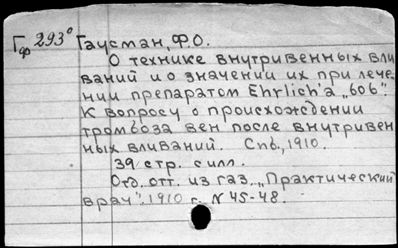 Гф 293⁰ Гаусман, Ф.О.
О технике внутривенных вли
ваний и о значении их при лече
нии препаратом Ehrlich'а „606".
К вопросу о происхождении
тромбоза вен после внутривен
ных вливаний. Спб., 1910.
39 стр. с илл.
Отд. отт. из газ. „Практический
врач". 1910 г. N 45-48.